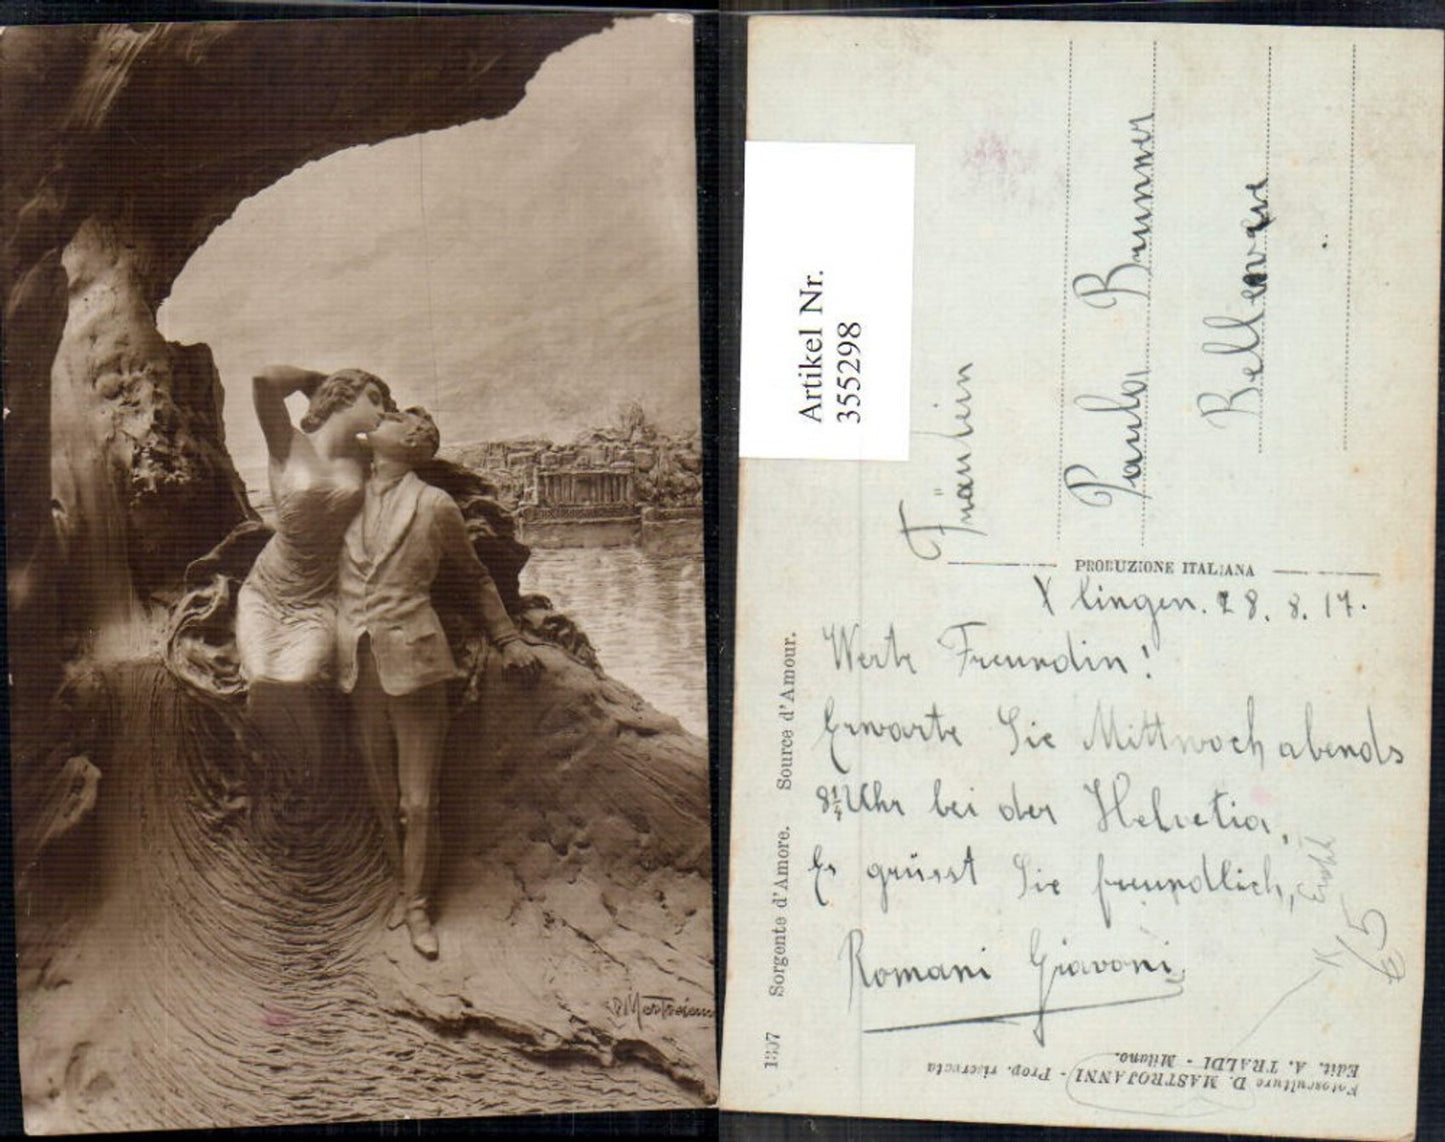 Mastroianni
Artikel Nr.
355298
Fräulein
Paula Brunner
Bellevue
PRODUZIONE ITALIANA
Xlingen. 28. 8. 17.
Werte Freundin!
Erwarte Sie Mittwoch abends
8¼ Uhr bei der Helvetia,
Es grüsst Sie freundlich,
Romani Giavoni
1307 Sorgente d'Amore. Source d'Amour.
Fotosculture D. MASTROJANNI - Prop. riservata
Edit. A. TRALDI - Milano.
K
65